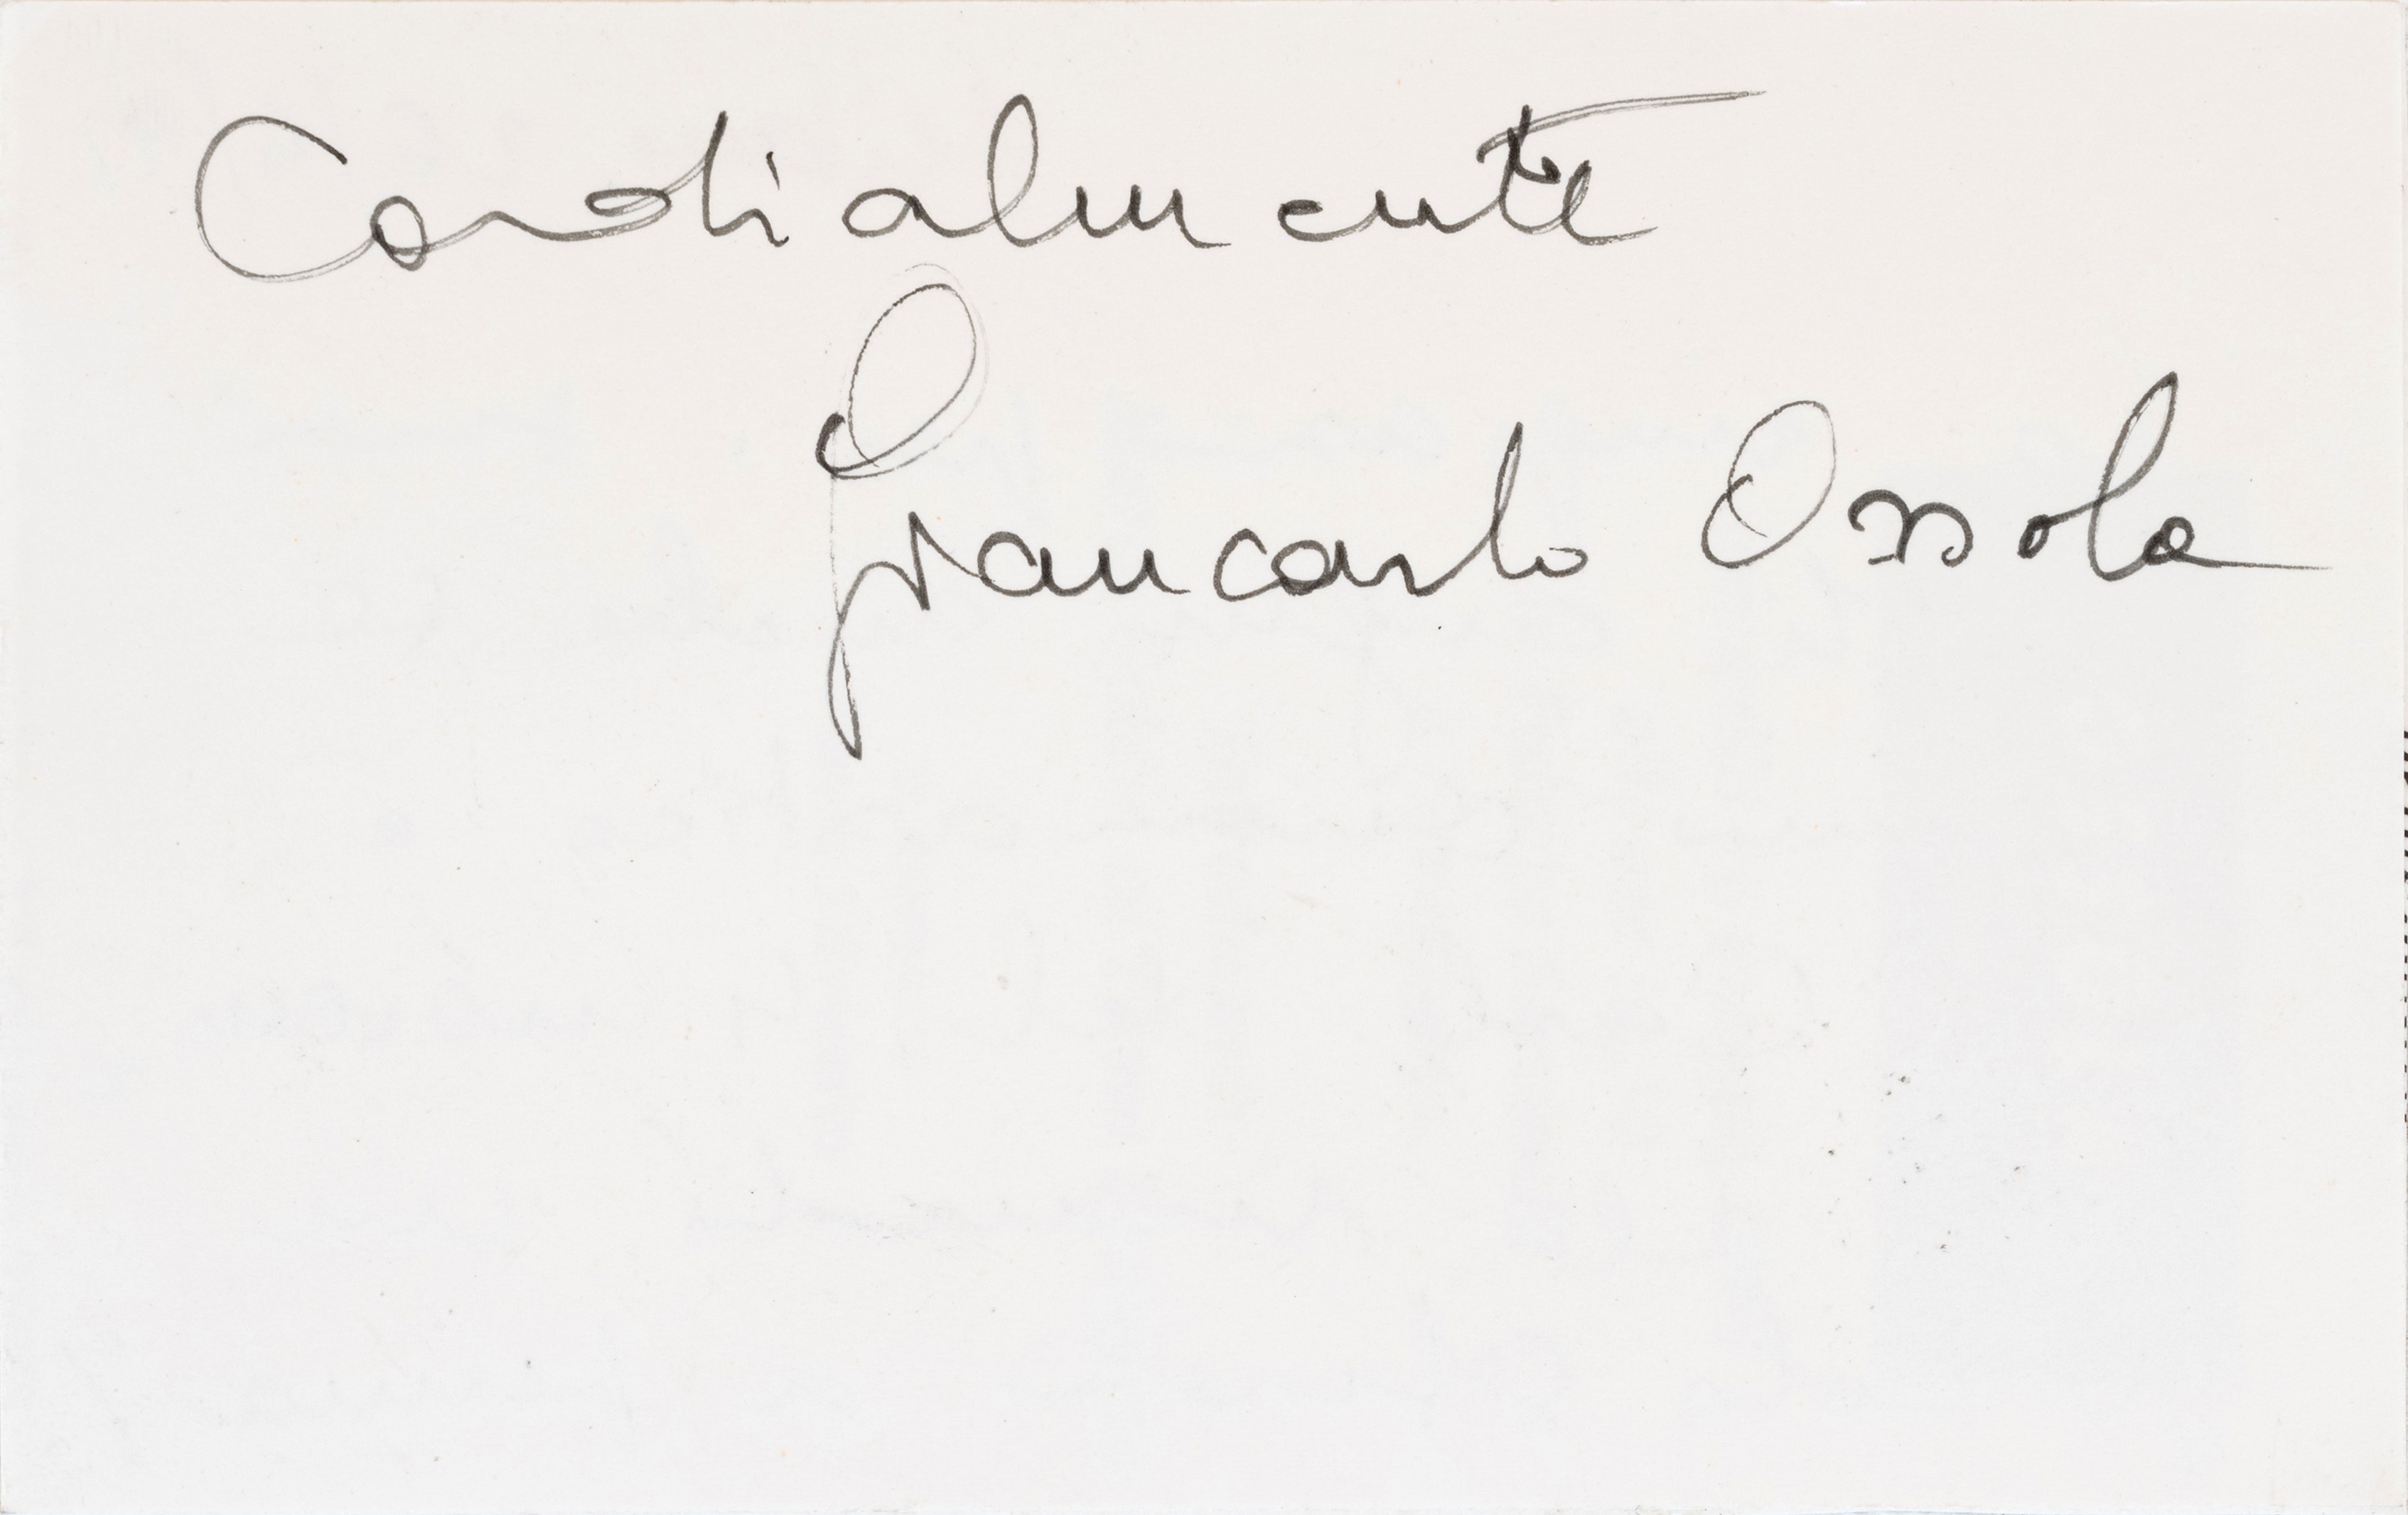 Cordialmente
Giancarlo Ossola